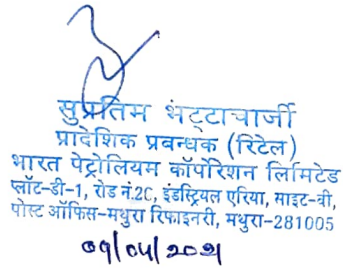 सुप्रतिम भट्टाचार्जी
प्रादेशिक प्रबन्धक (रिटेल)
भारत पेट्रोलियम कॉर्पोरेशन लिमिटेड
प्लॉट-डी-1, रोड नं.2C, इंडस्ट्रियल एरिया, साइट-बी,
पोस्ट ऑफिस-मथुरा रिफाइनरी, मथुरा-281005